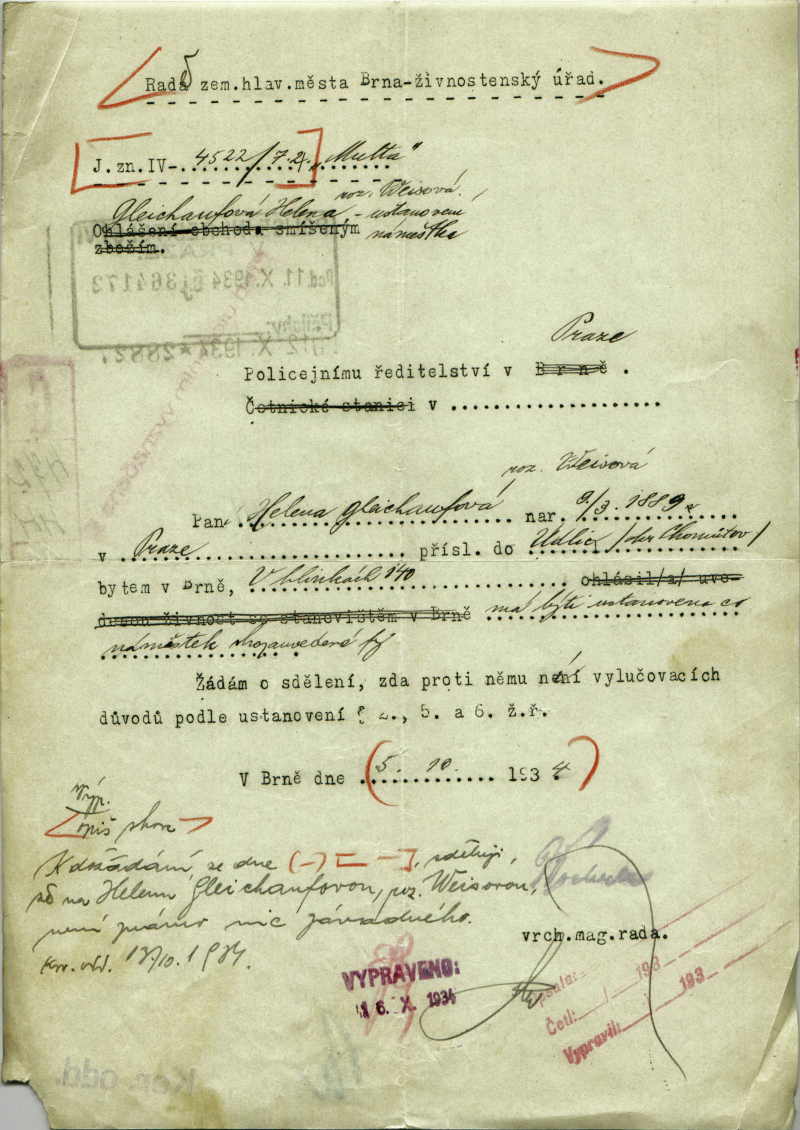 Radě zem.hlav.města Brna-živnostenský úřad.
J.zn.IV-4522/7.2. "Multa"
roz. Weisová,
Gleichaufová Helena - ustanovení
Ohlášení obchodu smíšeným náměstka
zbožím.
Pod 11. X. 1934 čj 364173
Přílohy:
12. X. 1934 * 2882.
Praze
Policejnímu ředitelství v Brně.
Četnické stanici v
roz. Weisová
Paní Helena Gleichaufová nar. 9/3. 1889
v Praze přísl. do Údlic /okr Chomutov/
bytem v Brně, V hlinkách 140 ohlásil/a/ uve-
denou živnost se stanovištěm v Brně má býti ustanovena co
náměstek shora uvedené fy
Žádám o sdělení, zda proti němu není vylučovacích
důvodů podle ustanovení § 2., 5. a 6. ž.ř.
V Brně dne 5. 10. 1934
Výp.
opiš shora
K dožádání ze dne (-) sděluji,
že na Helenu Gleichaufovou, roz. Weisovou,
není známo nic závadného.
13/10. 1934.
vrch.mag.rada.
VYPRAVENO:
16. X. 1934
193
Četl:
193
Vypravil:
Ker. odd.